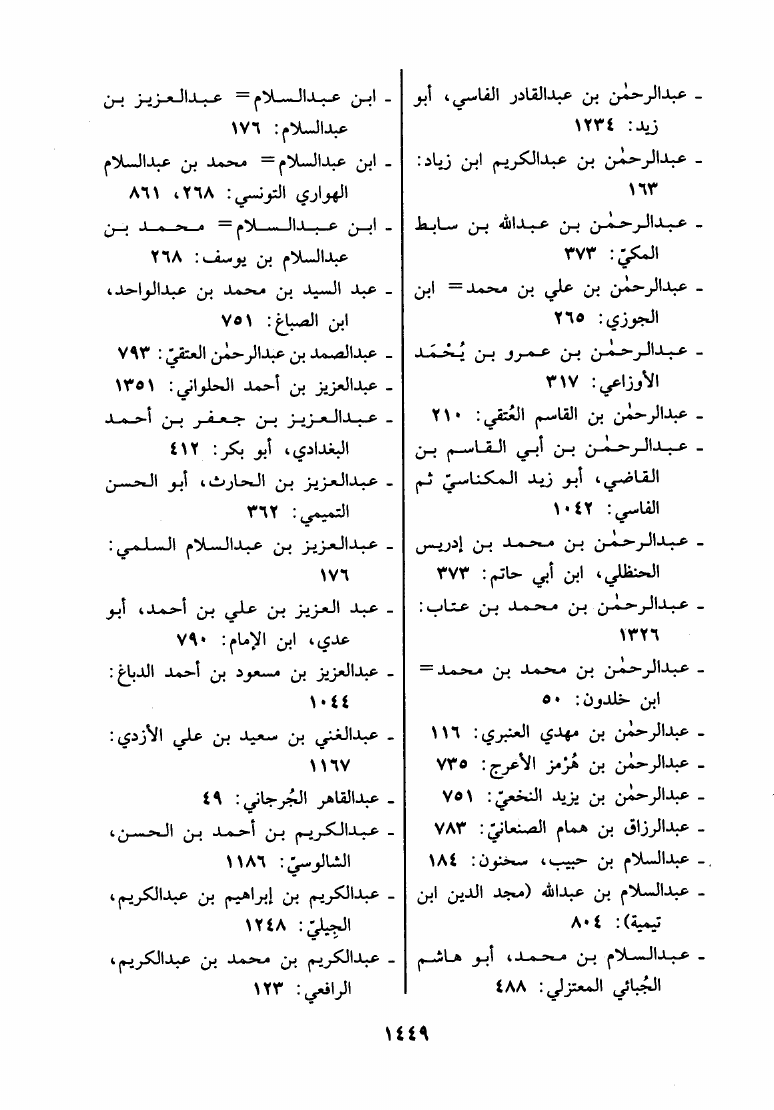 - عبدالرحمٰن بن عبدالقادر الفاسي، أبو
زيد: ١٢٣٤
- عبدالرحمٰن بن عبدالكريم ابن زياد:
١٦٣
- عبدالرحمٰن بن عبدالله بن سابط
المكيّ: ٣٧٣
- عبدالرحمٰن بن علي بن محمد= ابن
الجوزي: ٢٦٥
- عبدالرحمٰن بن عمرو بن يُحْمَد
الأوزاعي: ٣١٧
- عبدالرحمٰن بن القاسم العُتقي: ٢١٠
- عبدالرحمٰن بن أبي القاسم بن
القاضي، أبو زيد المكناسيّ ثم
الفاسي: ١٠٤٢
- عبدالرحمٰن بن محمد بن إدريس
الحنظلي، ابن أبي حاتم: ٣٧٣
- عبدالرحمٰن بن محمد بن عتاب:
١٣٢٦
- عبدالرحمٰن بن محمد بن محمد=
ابن خلدون: ٥٠
- عبدالرحمٰن بن مهدي العنبري: ١١٦
- عبدالرحمٰن بن هُرْمز الأعرج: ٧٣٥
- عبدالرحمٰن بن يزيد النخعيّ: ٧٥١
- عبدالرزاق بن همام الصنعانيّ: ٧٨٣
- عبدالسلام بن حبيب، سحنون: ١٨٤
- عبدالسلام بن عبدالله (مجد الدين ابن
تيمية): ٨٠٤
- عبدالسلام بن محمد، أبو هاشم
الجُبائي المعتزلي: ٤٨٨
- ابن عبدالسلام= عبدالعزيز بن
عبدالسلام: ١٧٦
- ابن عبدالسلام= محمد بن عبدالسلام
الهواري التونسي: ٢٦٨، ٨٦١
- ابن عبدالسلام= محمد بن
عبدالسلام بن يوسف: ٢٦٨
- عبد السيد بن محمد بن عبدالواحد،
ابن الصباغ: ٧٥١
- عبدالصمد بن عبدالرحمٰن العتقيّ: ٧٩٣
- عبدالعزيز بن أحمد الحلواني: ١٣٥١
- عبدالعزيز بن جعفر بن أحمد
البغدادي، أبو بكر: ٤١٢
- عبدالعزيز بن الحارث، أبو الحسن
التميمي: ٣٦٢
- عبدالعزيز بن عبدالسلام السلمي:
١٧٦
- عبد العزيز بن علي بن أحمد، أبو
عدي، ابن الإمام: ٧٩٠
- عبدالعزيز بن مسعود بن أحمد الدباغ:
١٠٤٤
- عبدالغني بن سعيد بن علي الأزدي:
١١٦٧
- عبدالقاهر الجُرجاني: ٤٩
- عبدالكريم بن أحمد بن الحسن،
الشالوسيّ: ١١٨٦
- عبدالكريم بن إبراهيم بن عبدالكريم،
الجِيليّ: ١٢٤٨
- عبدالكريم بن محمد بن عبدالكريم،
الرافعي: ١٢٣
١٤٤٩